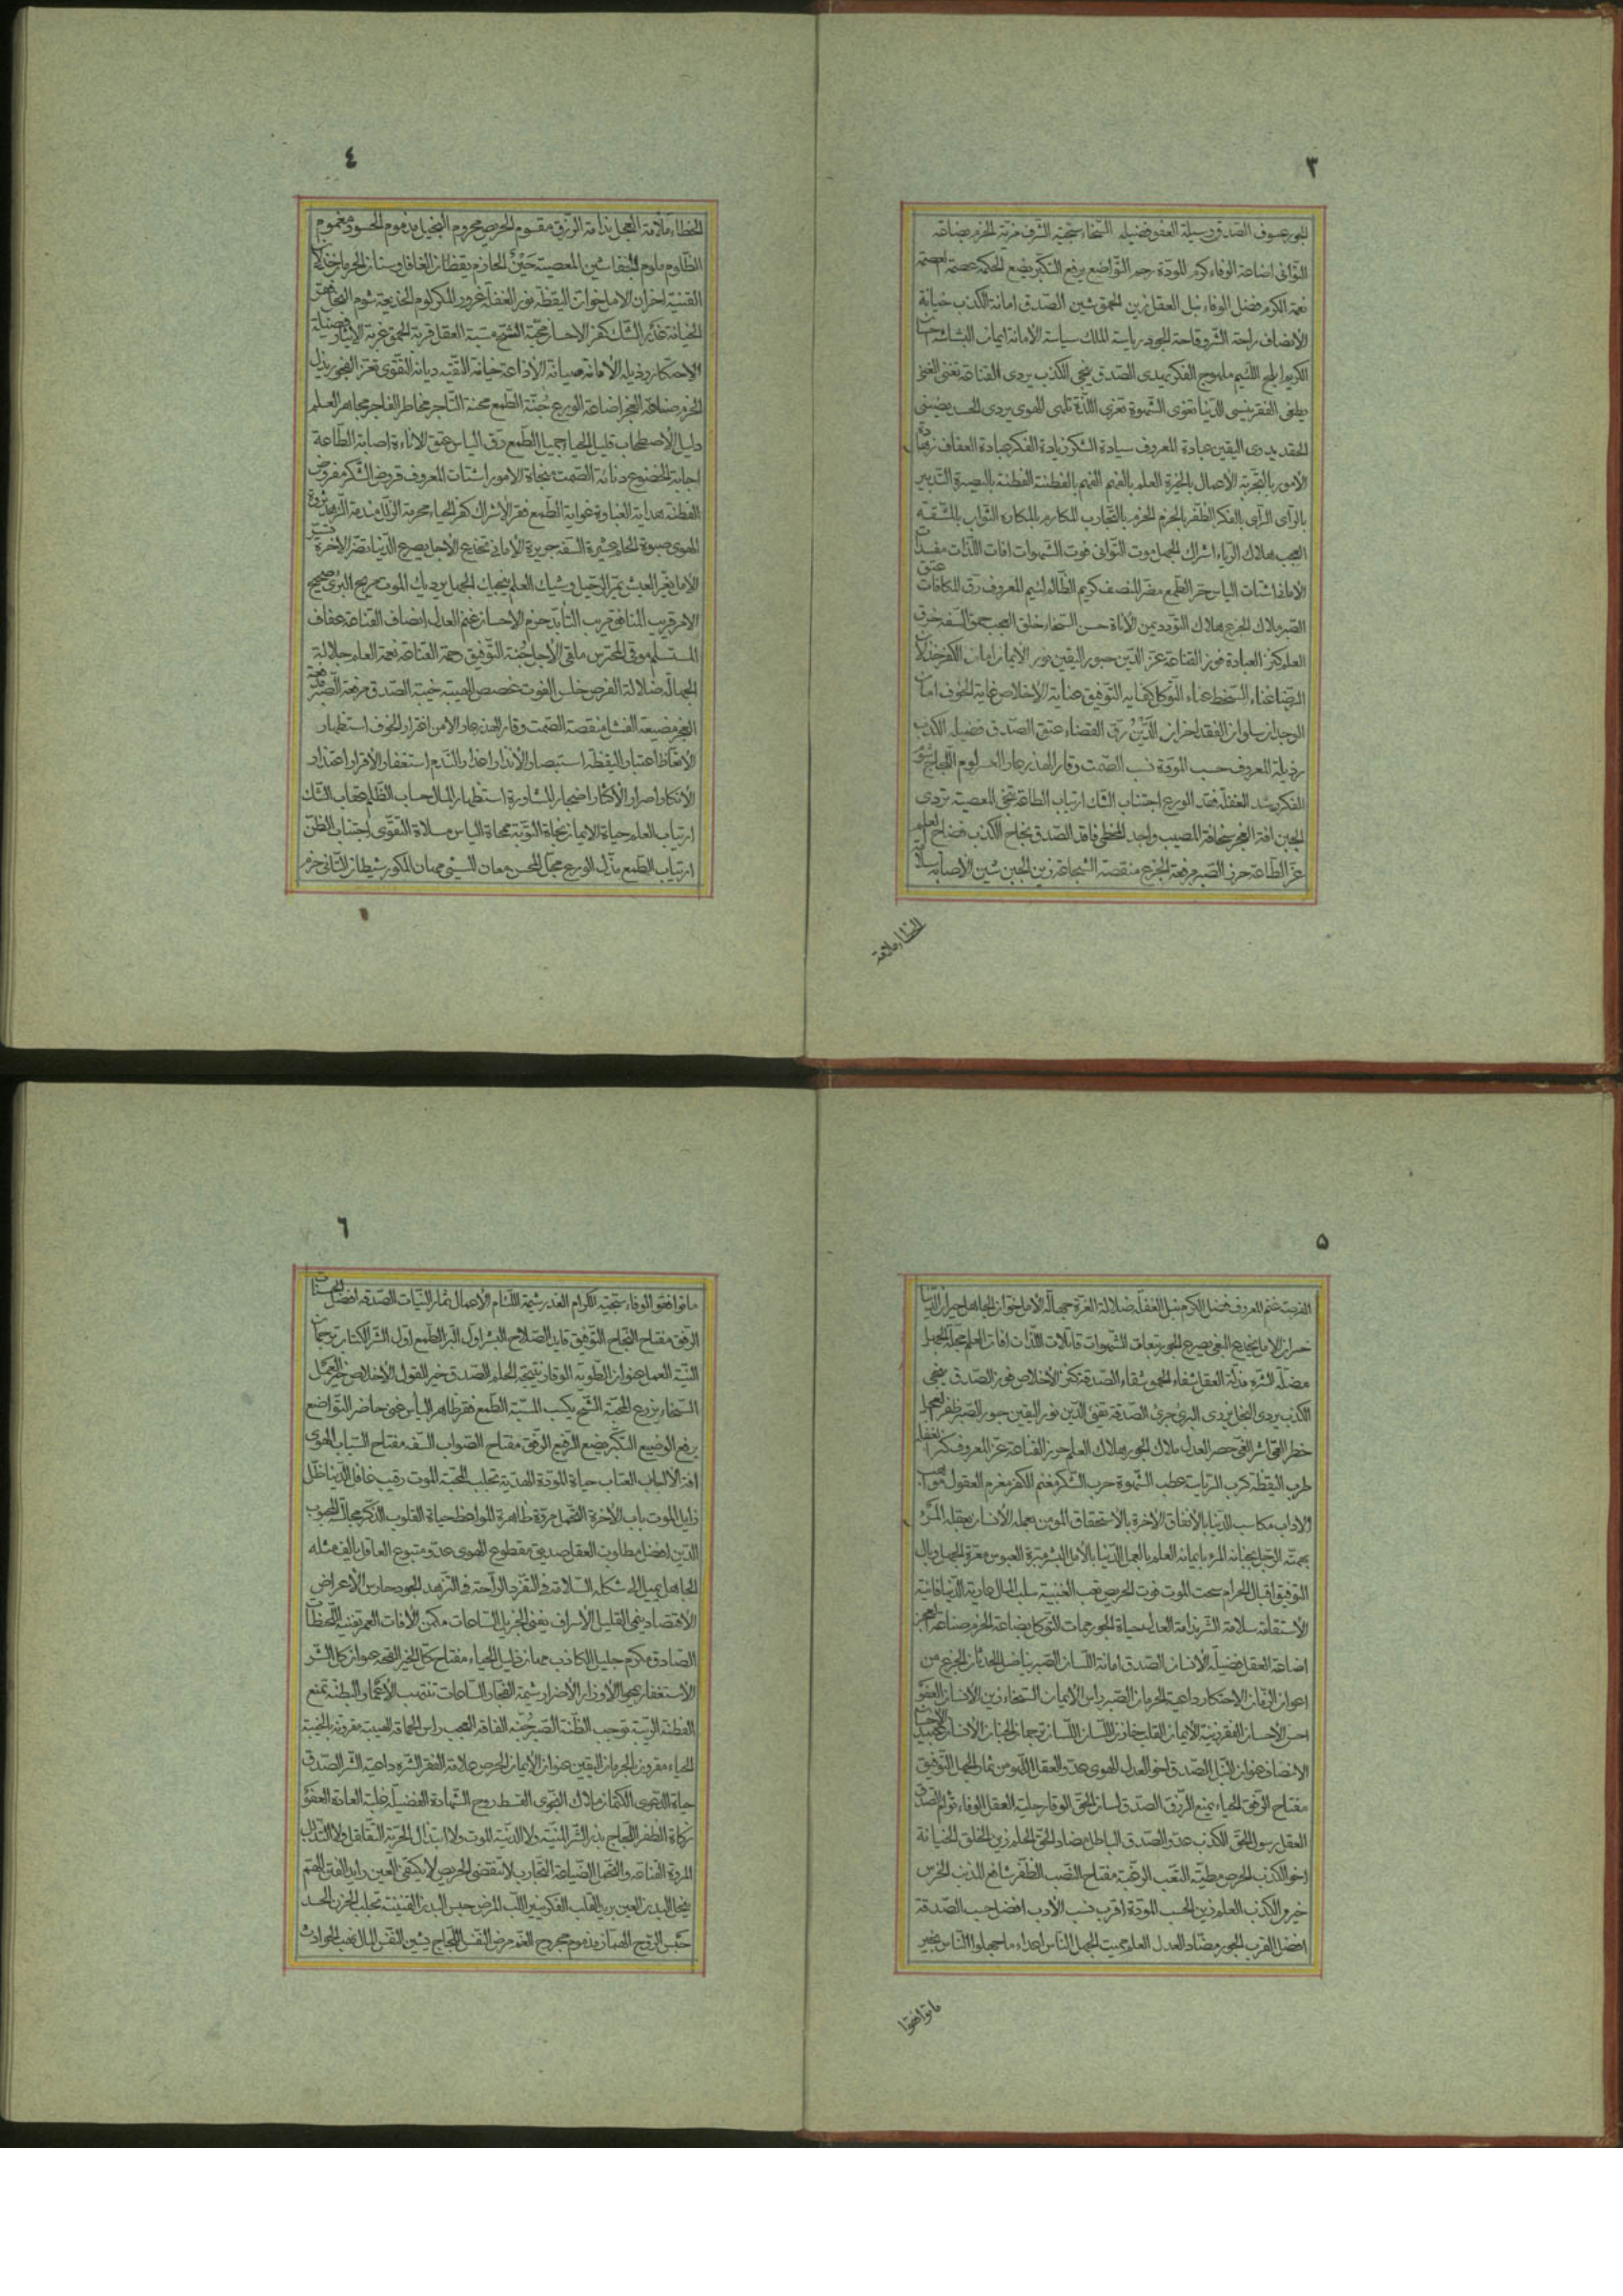 ٣
الجور عسوف الصدق وسيلة العفو فضيلة السخاء سجية الشرف مزية الحزم بضاعة
التوانى اضاعة الوفاء كرم المودة رحم التواضع يرفع التكبر يضع الحكمة عصمة العصمة
نعمة الكرم فضل الوفاء نبل العقل زين الحمق شين الصدق امانة الكذب خيانة
الأنصاف راحة الشر وقاحة الجود رياسة الملك سياسة الأمانة ايمان البشاشة احسان
الكريم ابلج اللئيم ملهوج الفكر يهدى الصدق ينجى الكذب يردى القناعة تغنى الغنى
يطغى الفقر ينسى الدنيا تغوى الشهوة تغرى اللذة تلهى الهوى يردى الحسد يضنى
الحقد يذوى اليقين عبادة المعروف سيادة الشكر زيادة الفكر عبادة العفاف زهادة
الأمور بالتجربة الأعمال بالخبرة العلم بالفهم الفهم بالفطنة الفطنة بالبصيرة التدبير
بالرأى الرأى بالفكر الظفر بالحزم الحزم بالتجارب المكارم بالمكاره الثواب بالمشقة
العجب هلاك الرياء اشراك الجهل موت التوانى فوت الشهوات افات اللذات مفسدات
الأمل اشتات الياس حر الطمع مضر المنصف كريم الظالم لئيم المعروف رق المكافات عتق
الصبر ملاك الجزع هلاك التودد يمن الأناة حسن السخاء خلق العجب حمق السفه خرق
العلم كنز العبادة فوز القناعة عز الدين حبور اليقين نور الايمان امان الكفر خذلان
الرضا غناء السخط عناء التوكل كفاية التوفيق عناية الأخلاص غاية الخوف امان
الوجدان سلوان الفقد احزان الدين رق القضاء عتق الصدق فضيلة الكذب
رذيلة المعروف حسب المودة نسب الصمت وقار الهذر عار الحرص لوم اللجاج شوم
الفكر رشد الغفلة فقد الورع اجتناب الشك ارتياب الطاعة تنجى المعصية تردى
الجبن افة العجز سخافة المصيب واجد المخطى فاقد الصدق نجاح الكذب فضاح العلم
عز الطاعة حرز الصبر مرفعة الجزع منقصة الشجاعة زين الجبن شين الأصابة سلامة
الخطاء ملامة
٤
الخطاء ملامة العجل ندامة الرزق مقسوم الحريص محروم البخيل مذموم الحسود مغموم
الظلوم ملوم الجفا شين المعصية حين الحازم يقظان الغافل وسنان الحرمان خذلان
القنية احزان الامل خوان اليقظة نور الغفلة غرور المكر لوم الخديعة شوم
الخيانة غدر الشك كفر الاحسان محبة الشح مسبة العقل قربة الحمق غربة الايثار فضيلة
الاحتكار رذيلة الأمانة صيانة الأذاعة خيانة التقية ديانة التقوى تعز الفجور يذل
الحزم صناعة العجز اضاعة الورع جنة الطمع محنة التاجر مخاطر الفاجر مجاهر العلم
دليل الأصطحاب قليل الحيا جميل الطمع رق الياس عتق الاناءة اصابة الطاعة
اجابة الخضوع دنائة الصمت منجاة الامور اشتات المعروف قروض الشكر مفروض
الفطنة هداية الغباوة غواية الطمع فقر الاشراك كفر الحياء محرمة الزلل مندمة التزهد ثروة
الهوى صبوة الحلم عشيرة السفه جريرة الأمانى تخادع الأجل يصرع الدنيا تضر الاخرة تسر
الأمل يغر العيش يمر الرحيل وشيك العلم ينجيك الجهل يرديك الموت مريح البرى صحيح
الامر قريب المنافق مريب التأيد حزم الاحسان غنم العدل انصاف القناعة عفاف
المستسلم موقى المحترس ملقى الأجل جنة التوفيق رحمة القناعة نعمة العلم جلالة
الجهالة ضلالة الفرص خلس الفوت غصص الهيبة خيبة الصدق مرفعة الصبر
العجز مضيعة الفشل منقصة الصمت وقار الهذر عار الأمن اغترار الخوف استظهار
الأتعاظ اعتبار اليقظة استبصار الأنذار اعذار الندم استغفار الأقرار اعتذار
الأنكار اصرار الأكثار اضجار المشاورة استظهار المال حساب الظلم عقاب الشك
ارتياب العلم حياة الايمان نجاة التوبة ممحاة الياس مسلاة التقوى اجتناب الظن
ارتياب الطمع مذل الورع مجل المحسن معان المسيئ مهان المكور شيطان التانى حزم
٥
الفرصة غنم المعروف فضل الكرم نبل الغفلة ضلالة الغرة جهالة الأمل خوان الجاهل حيران الدنيا
خسران الأمل يخادع البغى يصرع الجور تبعات الشهوات قاتلات اللذات افات العلم مجلة الجهل
مضلة الشره مذلة العقل شفاء الحمق شقاء الصدقة كنز الأخلاص فوز الصدق ينجى
الكذب يردى البخل يزرى البرى جرى الصدقة تقى الدين نور اليقين حبور الصبر ظفر العجل
خطر الغى اشر العى حصر العدل ملاك الجور هلاك العلم حرز القناعة عز المعروف كنز الغفلة
طرب اليقظة كرب الرياسة عطب الشهوة حرب الشكر مغنم الكفر مغرم العقول مواهب
الاداب مكاسب الدنيا بالأتفاق الأخرة بالأستحقاق المومن بعمله الأنسان بعقله المرؤ
بهمته الرجل بجنانه المرء بايمانه العلم بالعمل الدنيا بالأمل البشر مبرة العبوس معرة الجهل وبال
التوفيق اقبال الحرام سحت الموت فوت الحريص تعب الغيبة المال عارية الدنيا فانية
الأستقامة سلامة الشر ندامة العدل حياة الجور ممات التوكل بضاعة الحزم صناعة العجز
اضاعة العقل فضيلة الأنسان الصدق امانة اللسان الصبر يناضل الحدثان الجزع من
اعوان الزمان الاحتكار داعية الحرمان الصبر راس الأيمان السخاء زين الأنسان العفو
احسن الأحسان الفقر زينة الأيمان القلب خازن اللسان اللسان ترجمان الجنان الأنسان عبيد الأحسان
الأنصاف عنوان النبل الصدق اخو العدل الهوى عدو العقل اللهو من ثمار الجهل التوفيق
مفتاح الرفق الحياء يمنع الرزق الصدق لسان الحق الوقار حلية العقل الوفاء توام الصدق
العقل رسول الحق الكذب عدو الصدق الباطل مضاد الحق الحلم زين الخلق الخيانة
اخو الكذب الحرص مطية التعب الرغبة مفتاح النصب الظفر شافع المذنب الخرس
خير من الكذب العلم زين الحسب المودة اقرب نسب الأدب افضل حسب الصدقة
افضل القرب الجور مضاد العدل العلم مميت الجهل الناس اعداء ما جهلوا الناس بخير
ما توافقوا
٦
ما توافقوا الوفاء سجية الكرام الغدر شيمة اللئام الأعمال ثمار النيات الصدقة افضل الحسنات
الرفق مفتاح النجاح التوفيق قايد الصلاح البشر اول البر الطمع اول الشر الكتاب ترجمان
النية العمل عنوان الطوية الوقار نتيجة الحلم الصدق خير القول الأخلاص خير العمل
السخاء يزرع المحبة الشح يكسب المسبة الطمع فقر ظاهر الياس غنى حاضر التواضع
يرفع الوضيع التكبر يضع الرفيع الرفق مفتاح الصواب السفه مفتاح السباب الهوى
افة الألباب العتاب حياة المودة الهدية تجلب المحبة الموت رقيب غافل الدنيا ظل
زايل الموت باب الأخرة التجمل مروة ظاهرة المواعظ حياة القلوب الذكر مجالسة المحبوب
الدين افضل مطلوب العقل صديق مقطوع الهوى عدو متبوع العاقل يالف مثله
الجاهل يميل الى شكله السلامة فى التفرد الراحة فى التزهد الجود حارس الأعراض
الأقتصاد ينمى القليل الأسراف يفنى الجزيل الساعات مكمن الأفات العمر تفنيه اللحظات
الصادق مكرم جليل الكاذب مهان ذليل الحياء مفتاح كل الخير القحة عنوان كل الشر
الأستغفار يمحو الأوزار الأصرار شيمة الفجار الساعات تنتهب الأعمار البطنة تمنع
الفطنة الريبة توجب الظنة الصبر جنة الفاقة العجب راس الحماقة الهيبة مقرونة بالخيبة
الحياء مقرون بالحرمان اليقين عنوان الأيمان الحرص علامة الفقر الشره داعية الشر الصدق
حياة الدعوى الكتمان ملاك النجوى القسط روح الشهادة الفضيلة غلبة العادة العفو
زكاة الظفر اللجاج بذر الشر المنية ولا الدنية الموت ولا ابتذال الحرية التقلل ولا التذلل
المروة القناعة والتجمل الضياعة التجارب لا تنقضى الحريص لا يكتفى العين رايد القلب الهم
ينحل البدن العين بريد القلب الفكر ينير اللب المرض حبس البدن القنية تجلب الحزن الحسد
حبس الروح الهماز مذموم مجروح الغم مرض النفس اللجاج يشين النفس المال نهب الحوادث